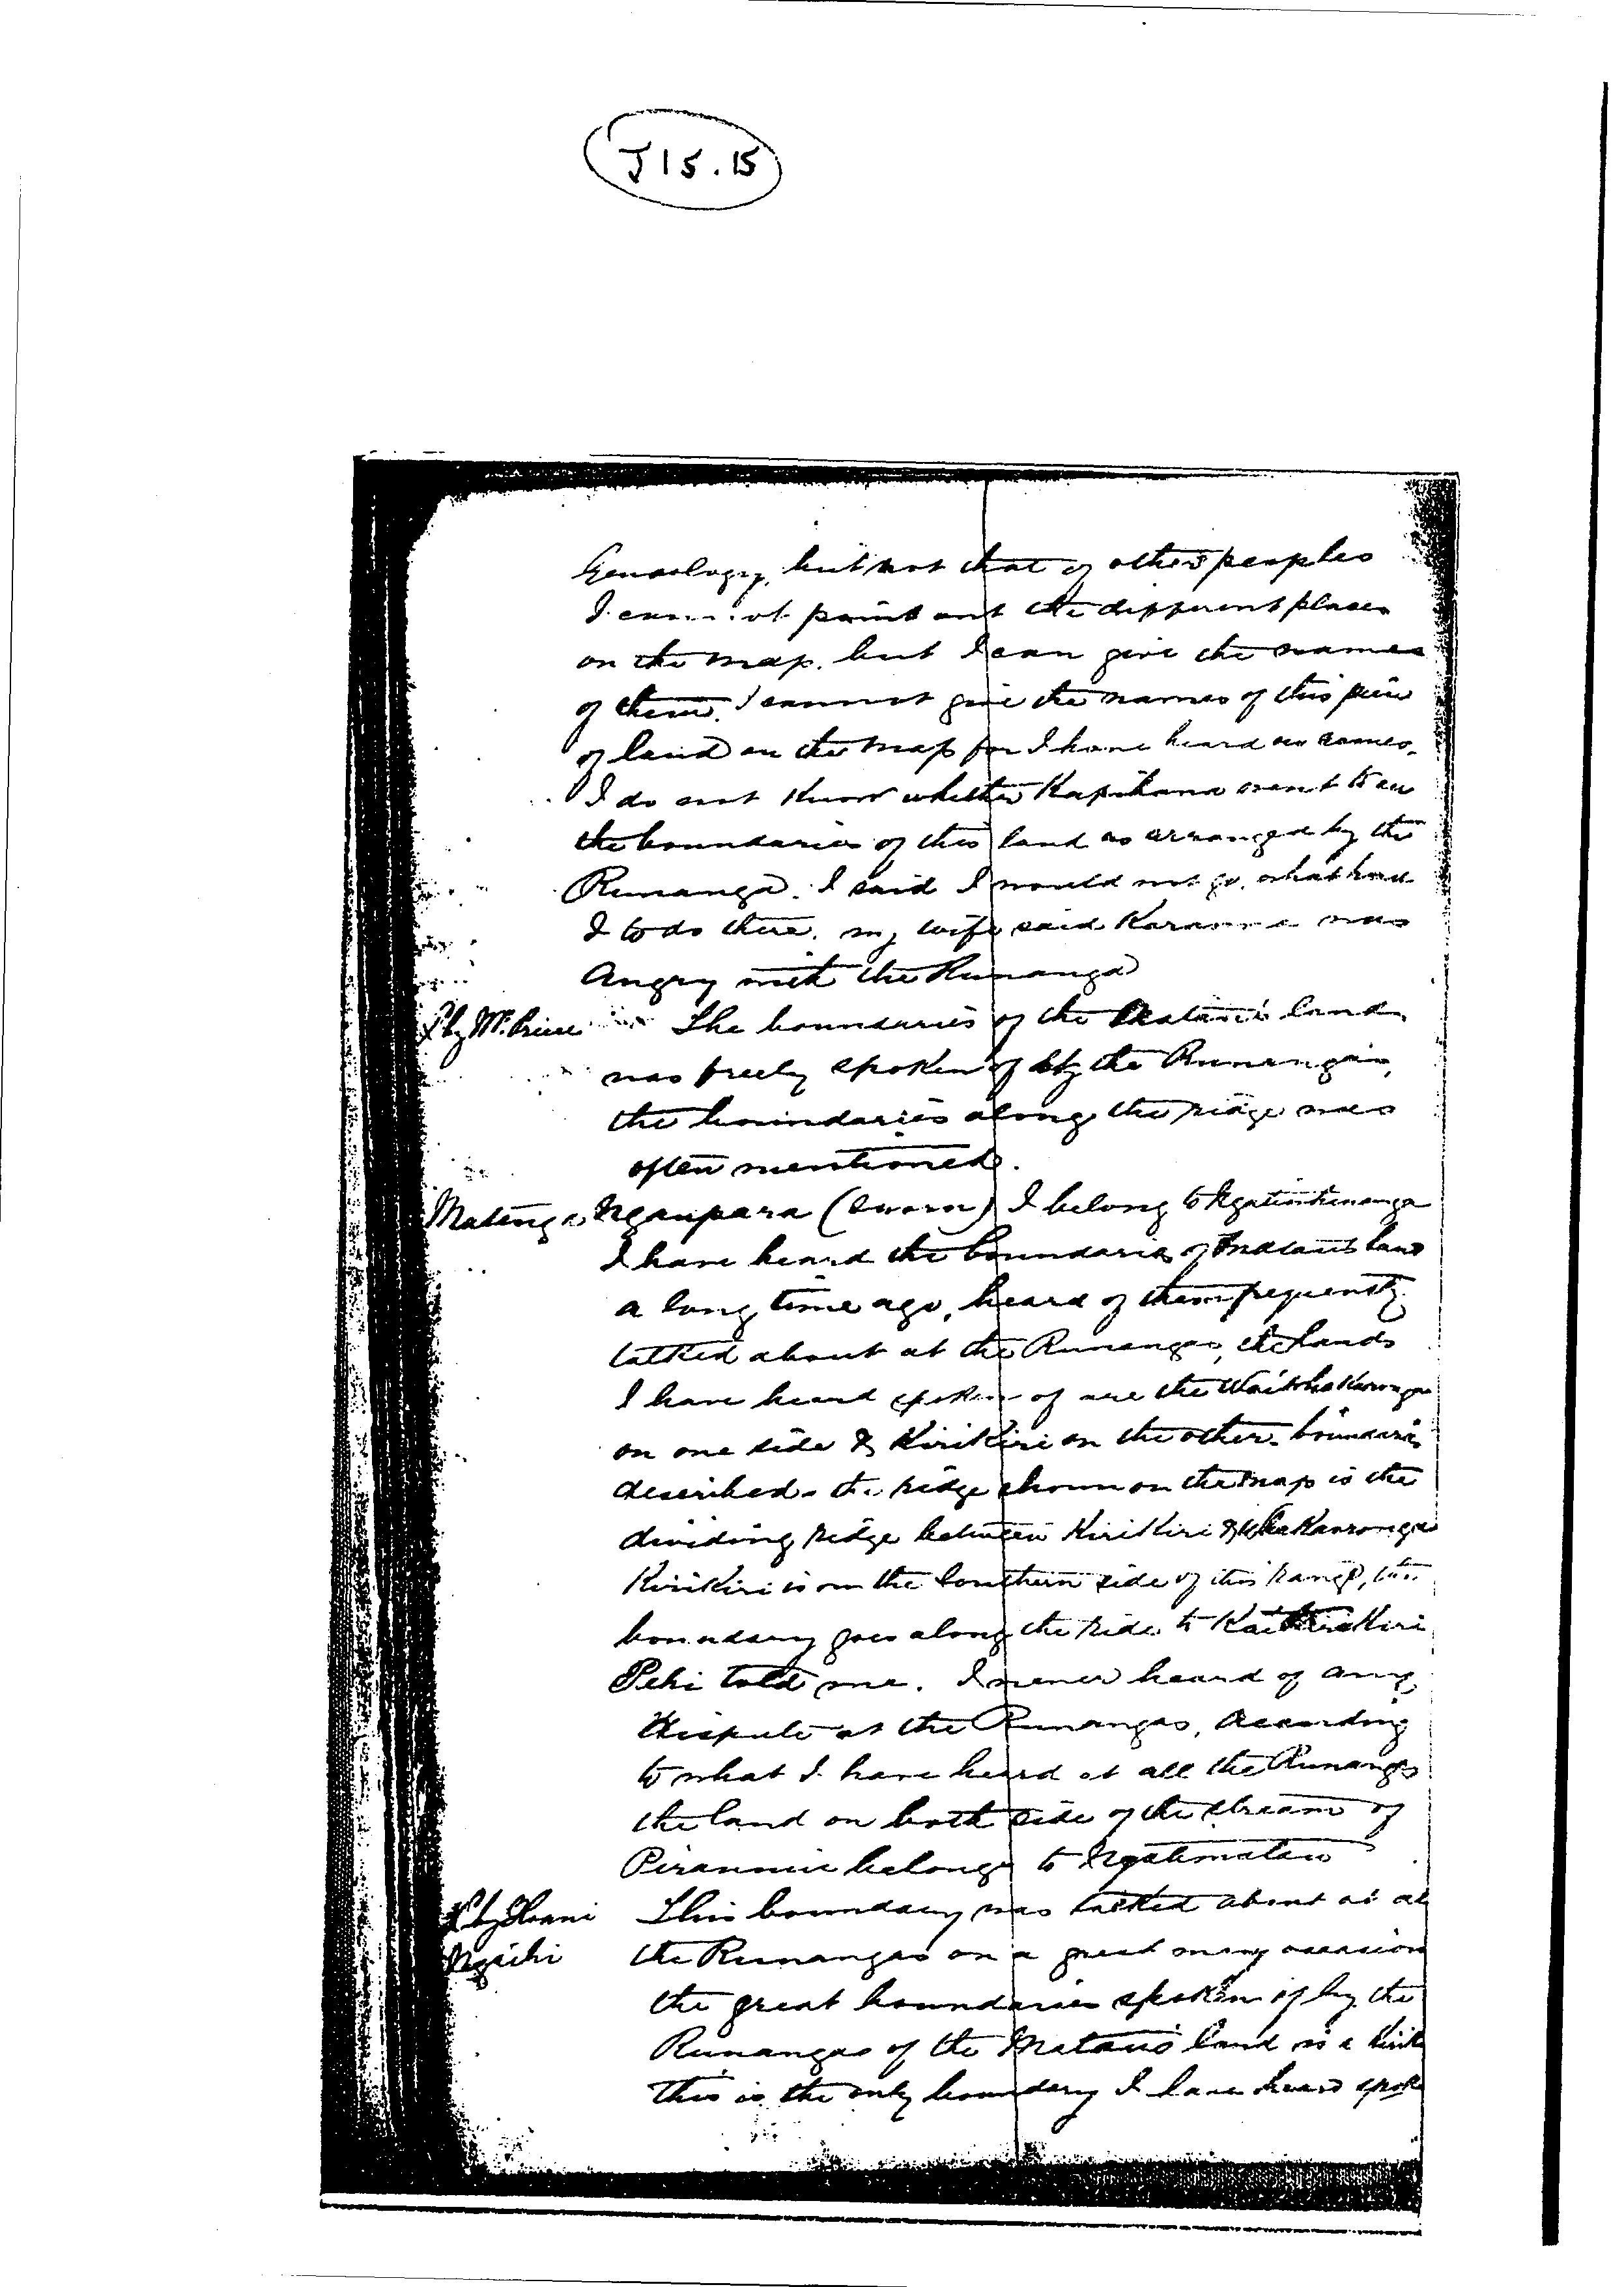 J15.15
Geneology, but not that of other peoples
I cannot point out the different places
on the map. but I can give the names
of them. I cannot give the names of this piece
of land on the map for I have heard no names.
I do not know whether Kapihana went to see
the boundaries of this land as arranged by the
Runanga. I said I would not go, what have
I to do there. my wife said was
Angry with the Runanga
X by Mr. Price The boundaries of the Mataii land
was freely spoken of by the Runangas,
the boundaries along the ridge was
often mentioned.
Matenga Ngaupara (Sworn) I belong to
I have heard the boundaries of land
a long time ago, heard of them frequently
talked about at the Runangas, the lands
I have heard spoken of are the
on one side & KiriKiri on the other. boundaries
described - the ridge shown on the map is the
dividing ridge between KiriKiri &
KiriKiri is on the Southern side of this range, the
boundary goes along the ride to
Pehi told me. I never heard of any
dispute at the Runangas, According
to what I have heard at all the Runangas
the land on both side of the stream of
belongs to
X by Hoani This boundary was talked about at al
Ngaihi the Runangas on a great many occasion
the great boundaries spoken of by the
Runangas of the land is a
This is the only boundary I have heard spoke